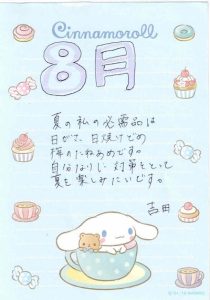 Cinnamoroll
8月
夏の私の必需品は
日がさ、日焼けどめ
梅のたねあめです。
自分なりに対策をとって
夏を楽しみたいです。
吉田